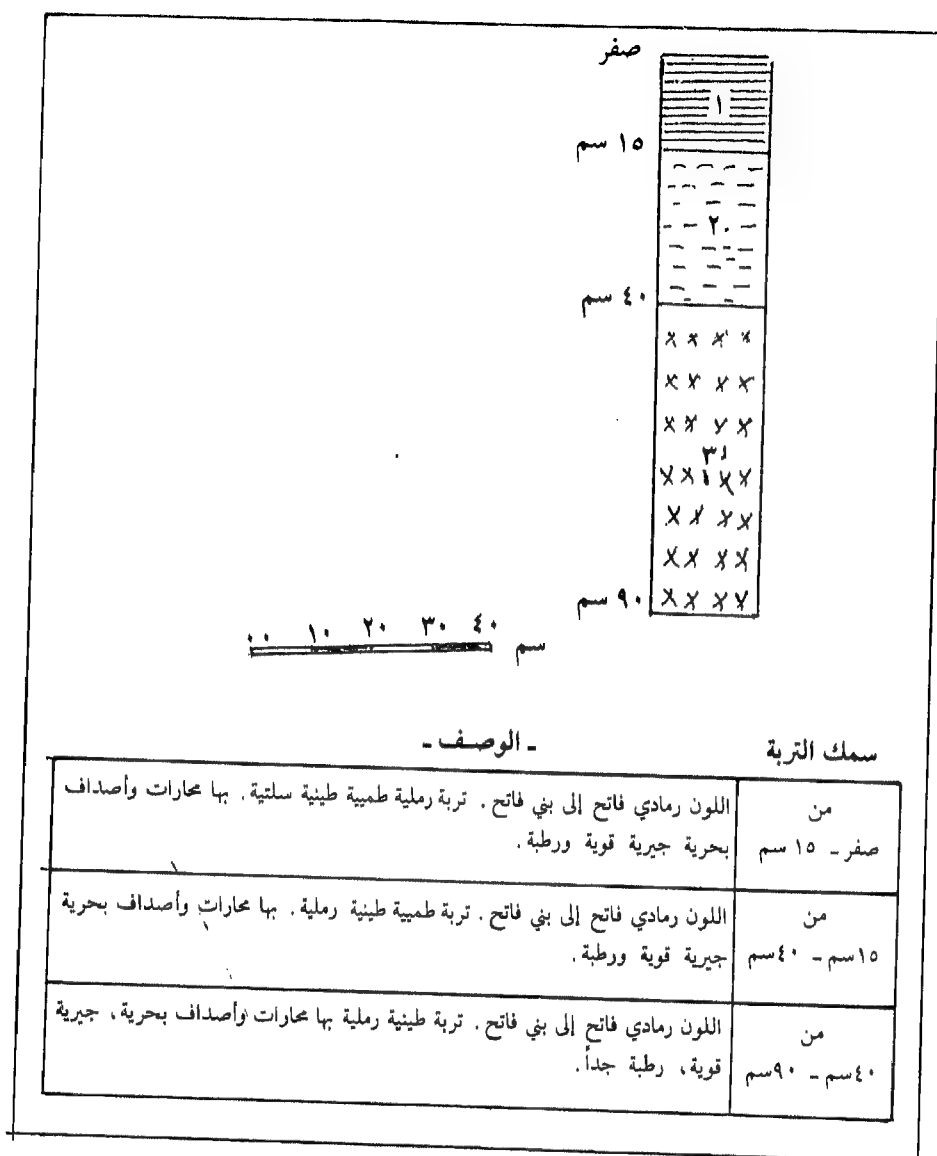 صفر
١
١٥ سم
٢٠
٤٠ سم
٣
٩٠ سم
٠٠ ١٠ ٢٠ ٣٠ ٤٠ سم
سمك التربة ـ الوصف ـ
من
صفر ـ ١٥ سم
اللون رمادي فاتح إلى بني فاتح . تربة رملية طميية طينية سلتية . بها محارات وأصداف
بحرية جيرية قوية ورطبة .
من
١٥سم ـ ٤٠سم
اللون رمادي فاتح إلى بني فاتح . تربة طميية طينية رملية . بها محارات وأصداف بحرية
جيرية قوية ورطبة .
من
٤٠سم ـ ٩٠سم
اللون رمادي فاتح إلى بني فاتح . تربة طينية رملية بها محارات وأصداف بحرية ، جيرية
قوية ، رطبة جداً .